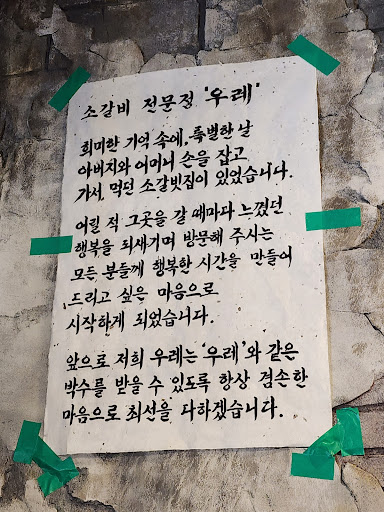 소갈비 전문점 '우레'
희미한 기억 속에, 특별한 날
아버지와 어머니 손을 잡고
가서 먹던 소갈빗집이 있었습니다.
어릴 적 그곳을 갈 때마다 느꼈던
행복을 되새기며 방문해 주시는
모든 분들께 행복한 시간을 만들어
드리고 싶은 마음으로
시작하게 되었습니다.
앞으로 저희 우레는 '우레'와 같은
박수를 받을 수 있도록 항상 겸손한
마음으로 최선을 다하겠습니다.